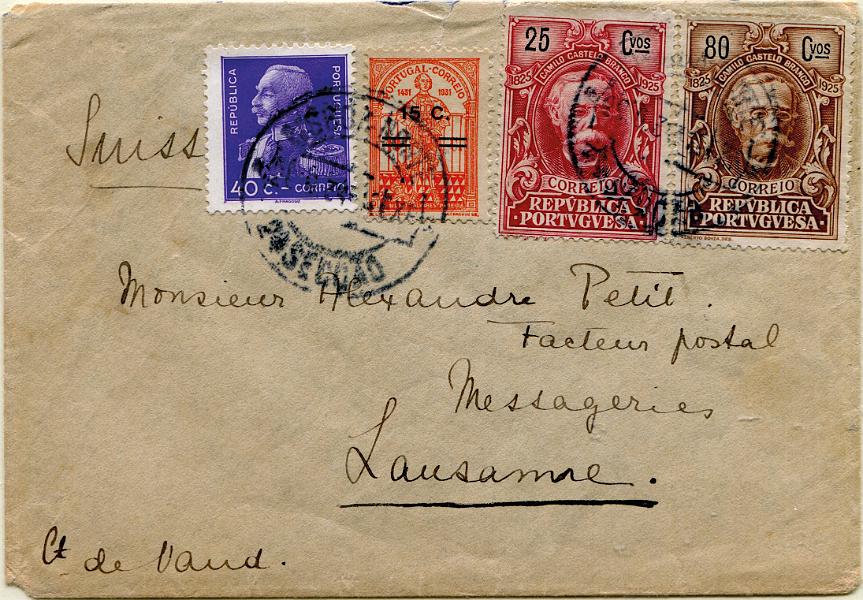 REPÚBLICA
PORTUGUESA
40 C.- CORREIO
PORTUGAL-CORREIO
1431 1931
15 C.
25 Cvos
CAMILO CASTELO BRANCO
1825 1925
CORREIO
REPVBLICA
PORTVGVESA
80 Cvos
CAMILO CASTELO BRANCO
1825 1925
CORREIO
REPVBLICA
PORTVGVESA
Suisse
Monsieur Alexandre Petit.
Facteur postal
Messageries
Lausanne.
Ct de Vaud.